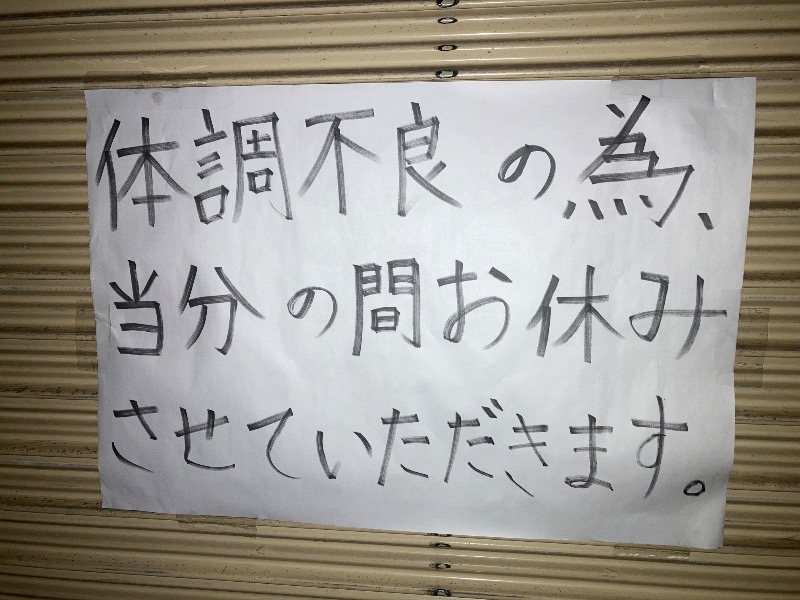 体調不良の為、
当分の間お休み
させていただきます。